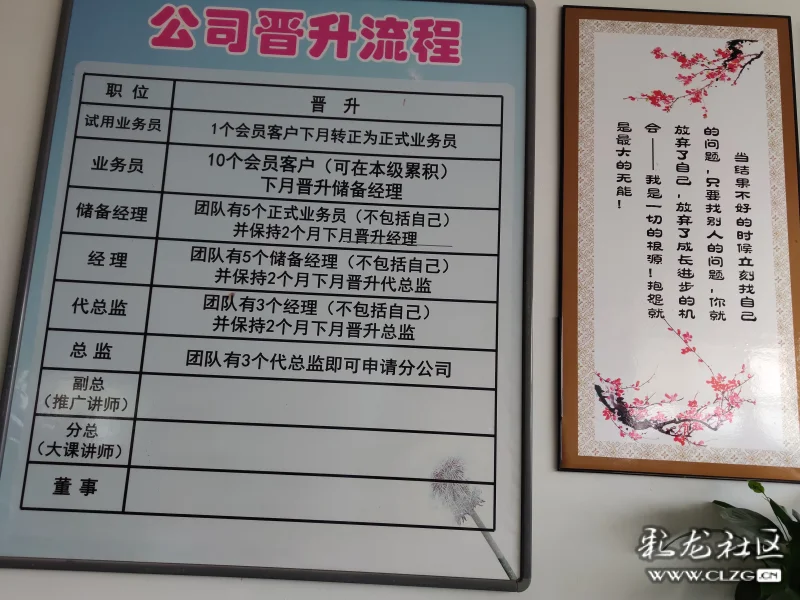 公司晋升流程
职位 晋升
试用业务员 1个会员客户下月转正为正式业务员
业务员 10个会员客户（可在本级累积）
下月晋升储备经理
储备经理 团队有5个正式业务员（不包括自己）
并保持2个月下月晋升经理
经理 团队有5个储备经理（不包括自己）
并保持2个月下月晋升代总监
代总监 团队有3个经理（不包括自己）
并保持2个月下月晋升总监
总监 团队有3个代总监即可申请分公司
副总
（推广讲师）
分总
（大课讲师）
董事
当结果不好的时候立刻找自己
的问题，只要找别人的问题，你就
放弃了自己，放弃了成长进步的机
会——我是一切的根源！抱怨就
是最大的无能！
彩龙社区
WWW.CLZG.CN